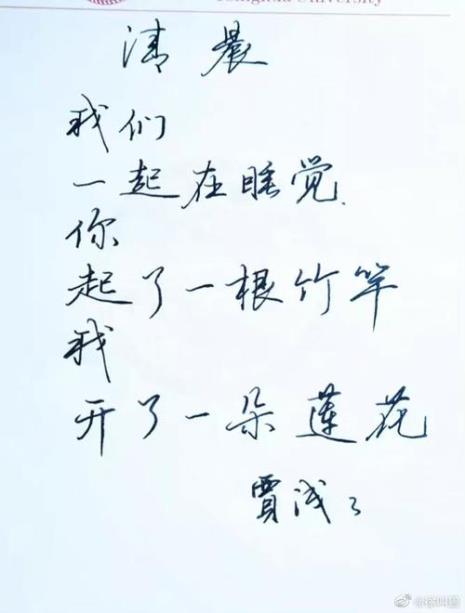 University
清晨
我们
一起在睡觉
你
起了一根竹竿
我
开了一朵莲花
贾浅々